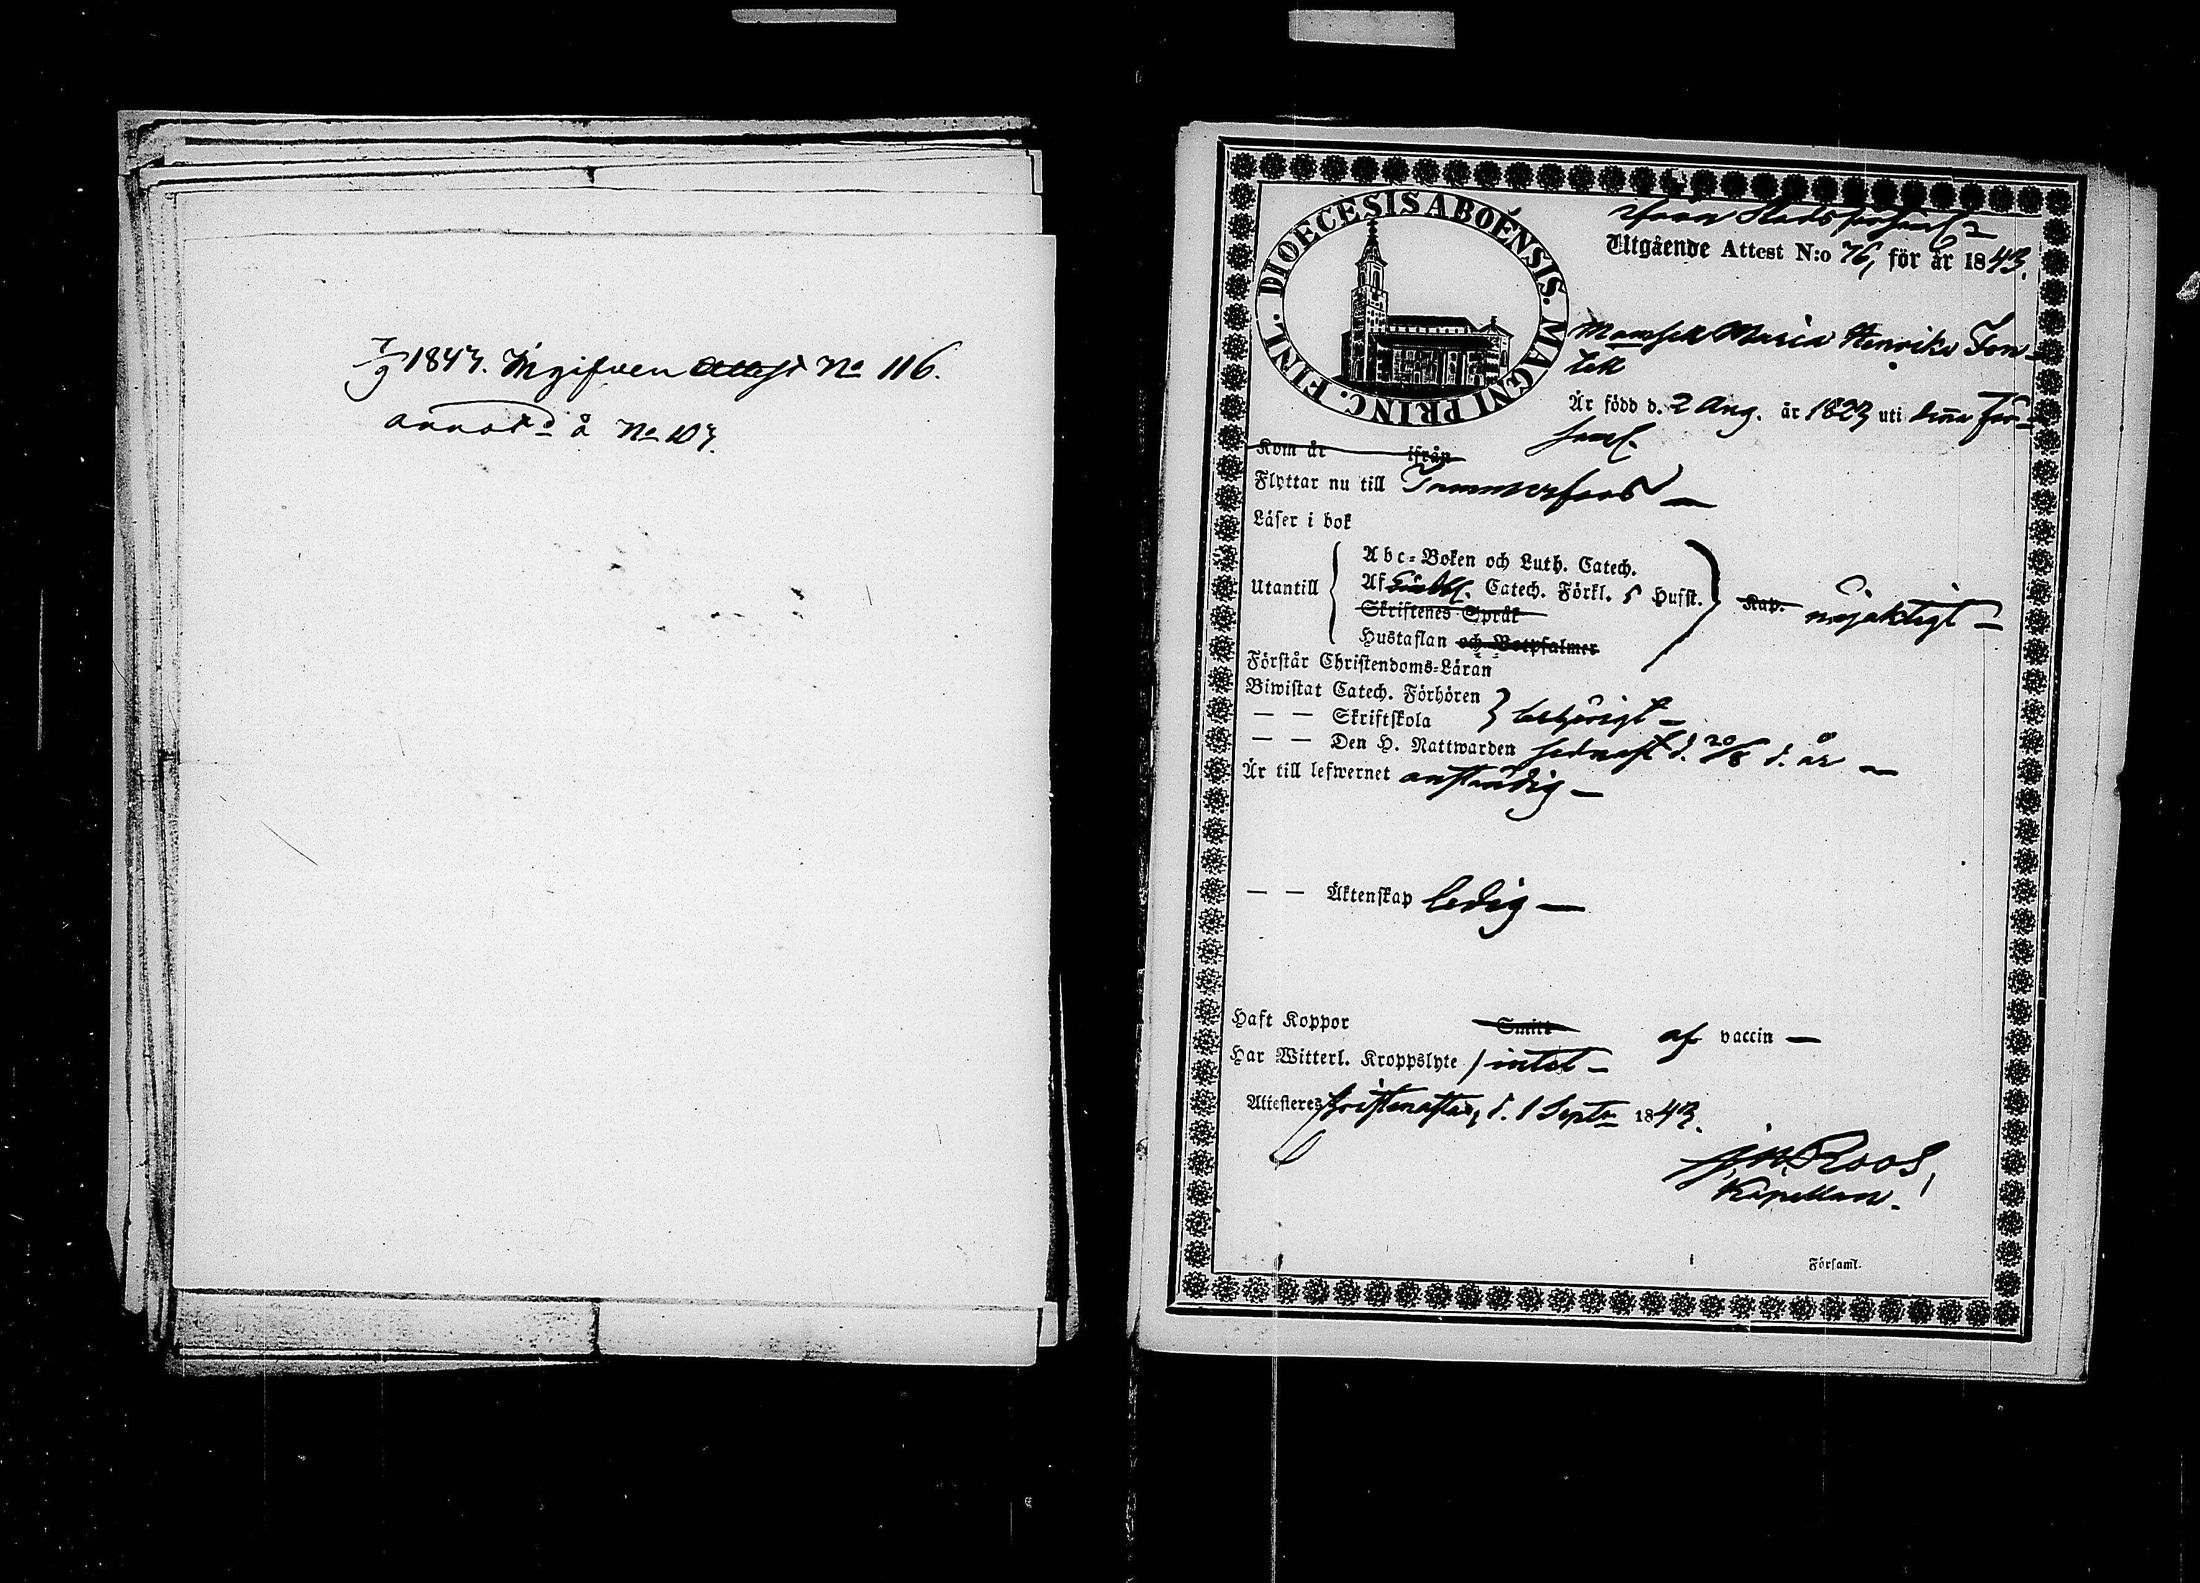 7/9 1843. Ingifven attest No 116.
annot:d å No 107.
DIOECESIS ABOËNSIS. MAGNI PRINC. FINL.
från Stadsförsaml
Utgående Attest N:o 76, för år 1843.
Mamsell Maria Henrika
Är född d. 2 Aug. år 1823 uti denna för-
saml.
Kom år ifrån
Flyttar nu till Tammerfors —
Läser i bok
Utantill
Abc-Boken och Luth. Catech.
Af Catech. Förkl. Husft.
Skriftenes Språk
Hustaflan och Botpsalmer
Kap. nöjaktigt —
Förstår Christendoms-Läran
Biwistat Catech. Förhören
— — Skriftskola
behörigt —
— — Den H. Nattwarden sednast d. 20/8 d. år —
Är till lefwernet anständig —
— — Äktenskap ledig —
Haft Koppor Smitt af vaccin —
Har Witterl. Kroppslyte intet —
Attesteres Christinestad, d. 1 Septr 1843.
Roos,
Kapellan.
Församl.